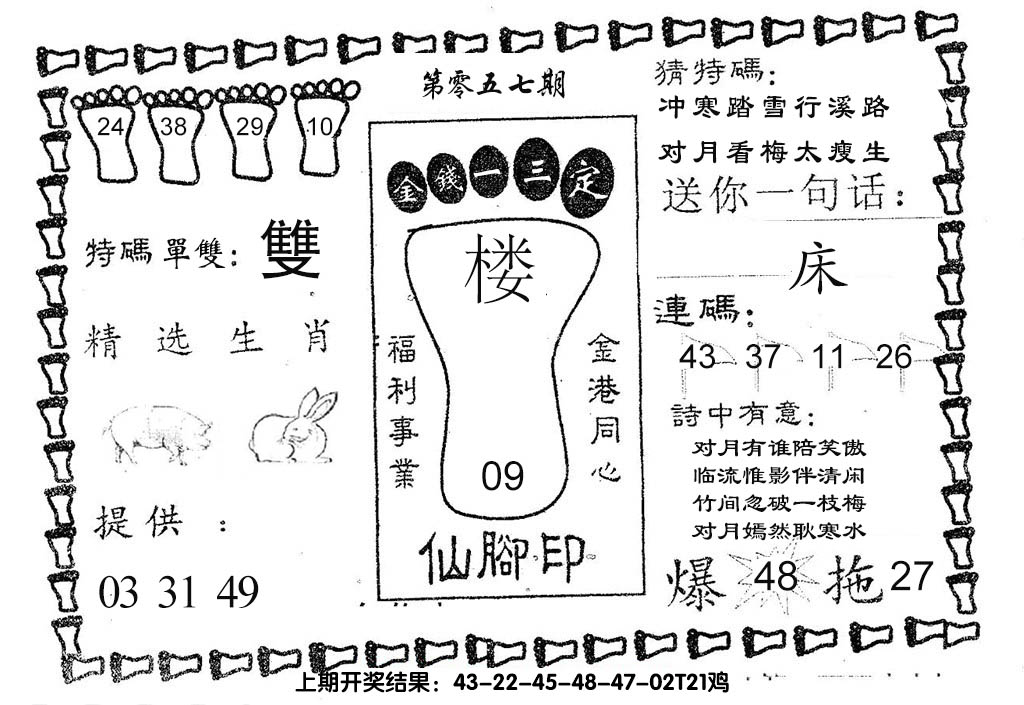 第零五七期
24 38 29 10
特碼單雙: 雙
精选生肖
提供:
03 31 49
金錢一三定
楼
福利事業
金港同心
09
仙腳印
猜特碼:
冲寒踏雪行溪路
对月看梅太瘦生
送你一句话:
床
連碼:
43 37 11 26
詩中有意:
对月有谁陪笑傲
临流惟影伴清闲
竹间忽破一枝梅
对月嫣然耿寒水
爆 48 拖 27
上期开奖结果: 43-22-45-48-47-02T21鸡